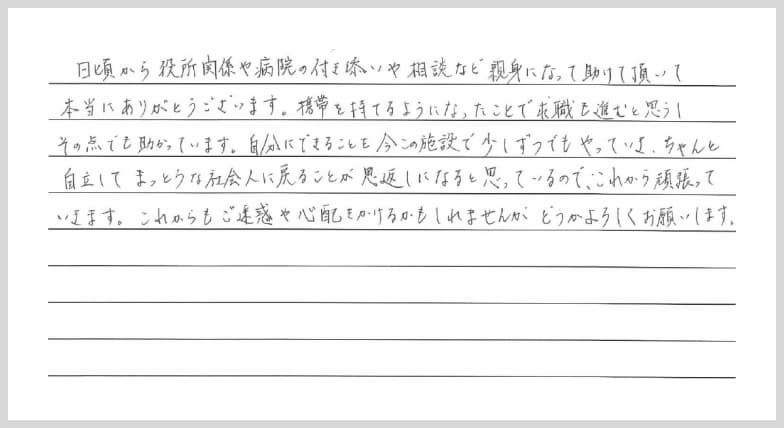 日頃から役所関係や病院の付き添いや相談など親身になって助けて頂いて
本当にありがとうございます。携帯を持てるようになったことで求職も進むと思うし
その点でも助かっています。自分にできることを今この施設で少しずつでもやっていき、ちゃんと
自立してまっとうな社会人に戻ることが恩返しになると思っているので、これから頑張って
いきます。これからもご迷惑や心配をかけるかもしれませんがどうかよろしくお願いします。